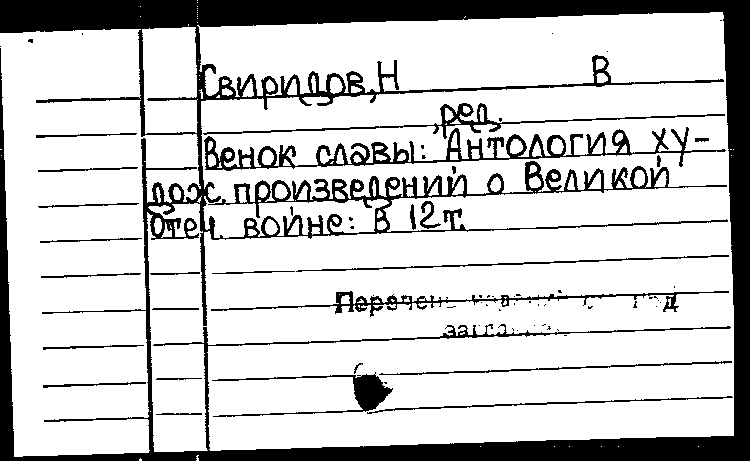 Свиридов, Н В
, ред.
Венок славы: Антология ху-
дож. произведений о Великой
Отеч. войне: В 12 т.
Перечень